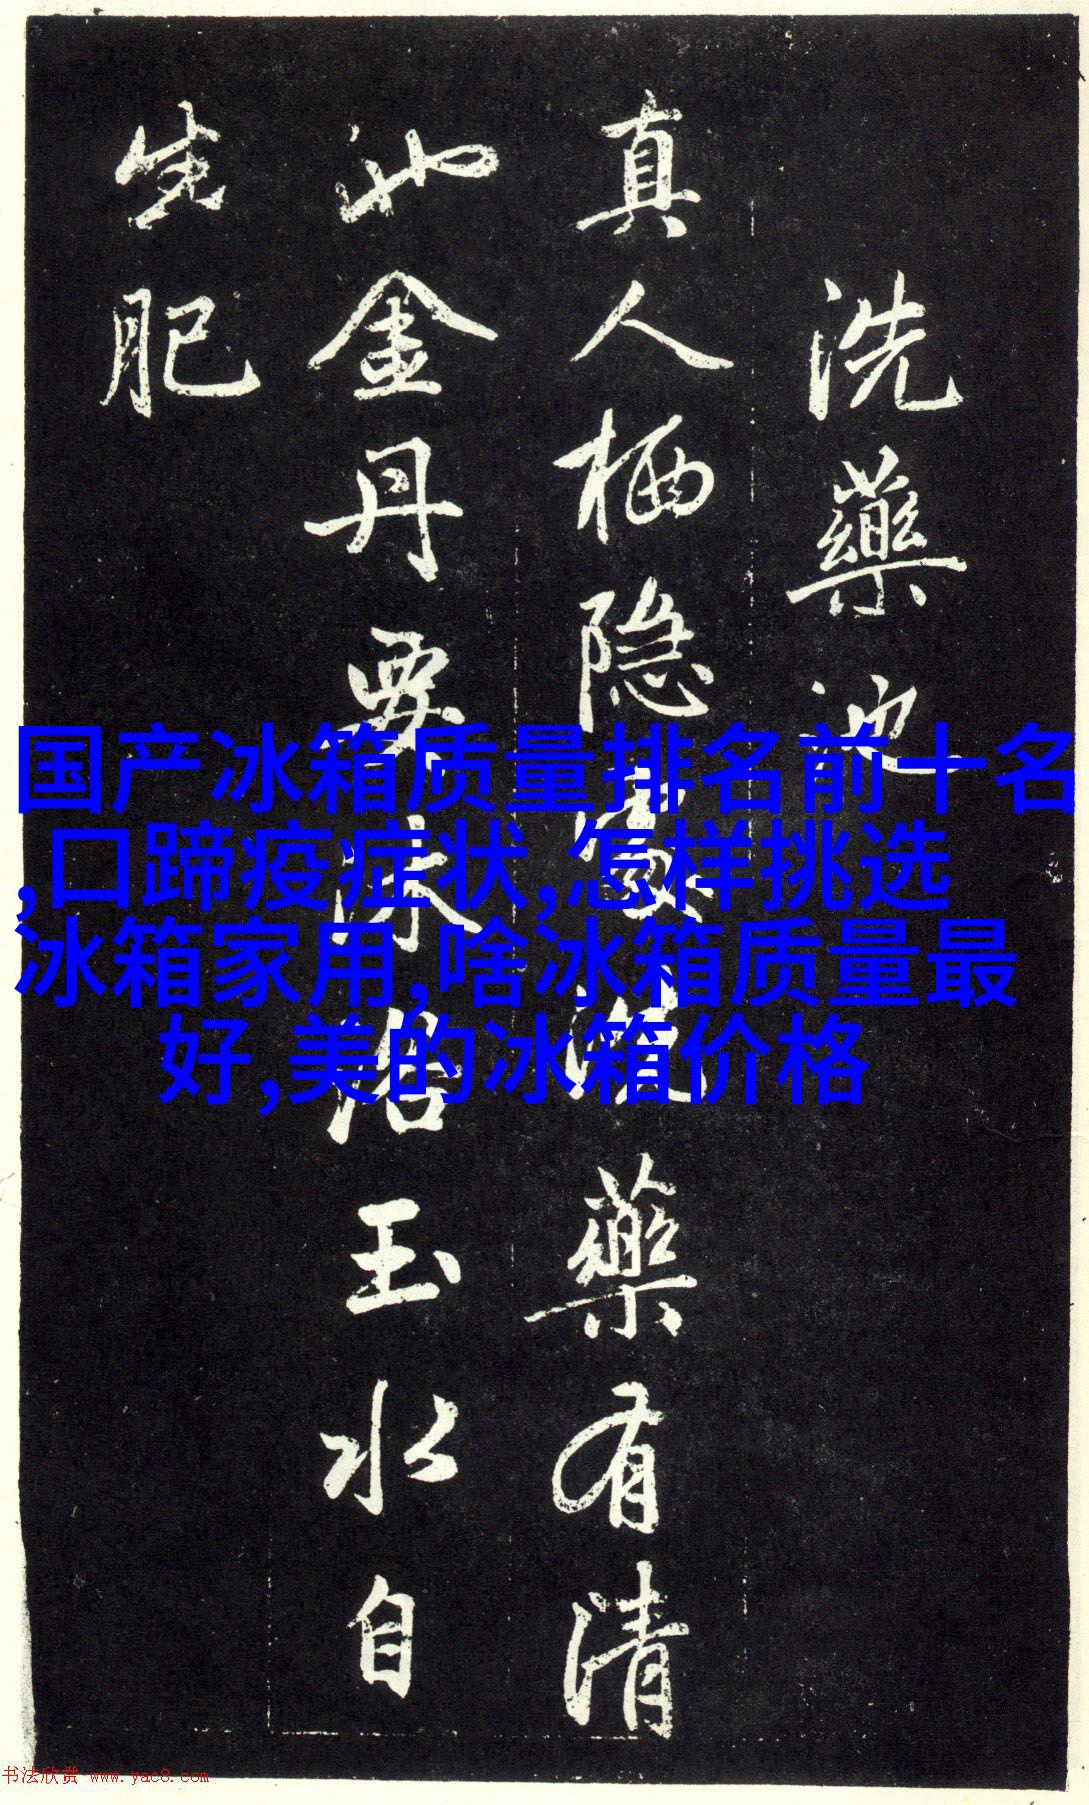 洗藥池
真人栖隐處洗藥有清
池金丹要沐浴玉水自
生肥
国产冰箱质量排名前十名
,口蹄疫症状,怎样挑选
冰箱家用,啥冰箱质量最
好,美的冰箱价格
书法欣赏 www.yac8.com